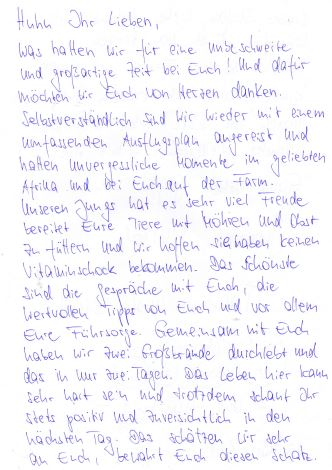 Huhu Ihr Lieben,
was hatten wir für eine unbeschwerte
und großartige Zeit bei Euch! Und dafür
möchten wir Euch von Herzen danken.
Selbstverständlich sind wir wieder mit einem
umfassenden Ausflugsplan angereist und
hatten unvergessliche Momente im geliebten
Afrika und bei Euch auf der Farm.
Unseren Jungs hat es sehr viel Freude
bereitet Eure Tiere mit Möhren und Obst
zu füttern und wir hoffen sie haben keinen
Vitaminschock bekommen. Das Schönste
sind die Gespräche mit Euch, die
wertvollen Tipps von Euch und vor allem
Eure Führsorge. Gemeinsam mit Euch
haben wir zwei Großbrände durchlebt und
das in nur zwei Tagen. Das Leben hier kann
sehr hart sein und trotzdem schaut Ihr
stets positiv und zuversichtlich in den
nächsten Tag. Das schätzen wir sehr
an Euch, bewahrt Euch diesen Schatz.